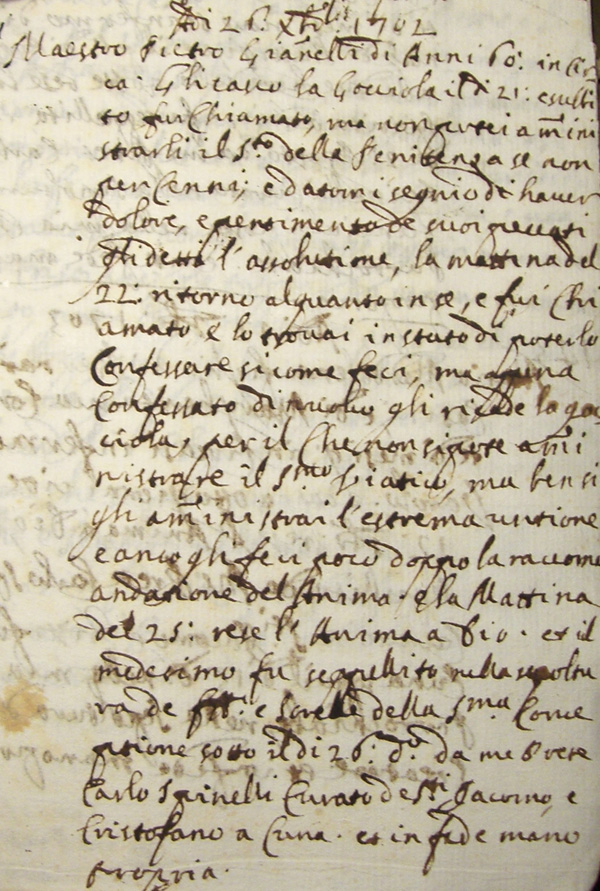 Adi 26: Xbre 1702
Maestro Pietro Gianelli di Anni 60: in cir
ca: Gli cascò la Gocciola il dì 21: e subbi
to fui Chiamato, ma non potei amini
strarli il Sto della Penitenza se non
per Cenni; e datomi segnio di haver
dolore, e pentimento de suoi peccati
gli detti l'assolutione, la mattina del
22: ritorno alquanto in se, e fui Chi
amato e lo trovai in stato di poterlo
Confessare sì come feci, ma apena
Confessato di nuovo gli ricade la goc
ciola, per il Che non si potè ami
nistrare il Smo Viatico, ma bensì
gli aministrai l'estrema untione
e anco gli feci poco doppo la raccom
andatione del Anima. e la Mattina
del 25: rese l'Anima a Dio. et il
medesimo fu seppellito nella sepoltu
ra de ffli: e Sorelle della Sma Conce
ptione sotto il dì 26: do. da me Prete
Carlo Spinelli Curato de Sti Jacomo, e
Cristofano a Cuna. et in fede mano
propria.